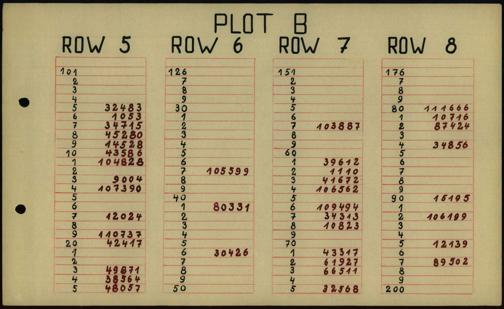 PLOT B
ROW 5
101
2
3
4
5 32483
6 1053
7 34715
8 45280
9 14528
10 43586
1 104828
2
3 9004
4 107390
5
6
7 12024
8
9 110737
20 42417
1
2
3 49871
4 38564
5 48057
ROW 6
126
7
8
9
30
1
2
3
4
5
6
7 105599
8
9
40
1 80331
2
3
4
5
6 30426
7
8
9
50
ROW 7
151
2
3
4
5
6
7 103887
8
9
60
1 39612
2 1110
3 41672
4 106562
5
6 109494
7 34313
8 10823
9
70
1 43317
2 61927
3 66511
4
5 32568
ROW 8
176
7
8
9
80 111666
1 10716
2 87424
3
4 34856
5
6
7
8
9
90 15195
1
2 106189
3
4
5 12139
6
7 89502
8
9
200